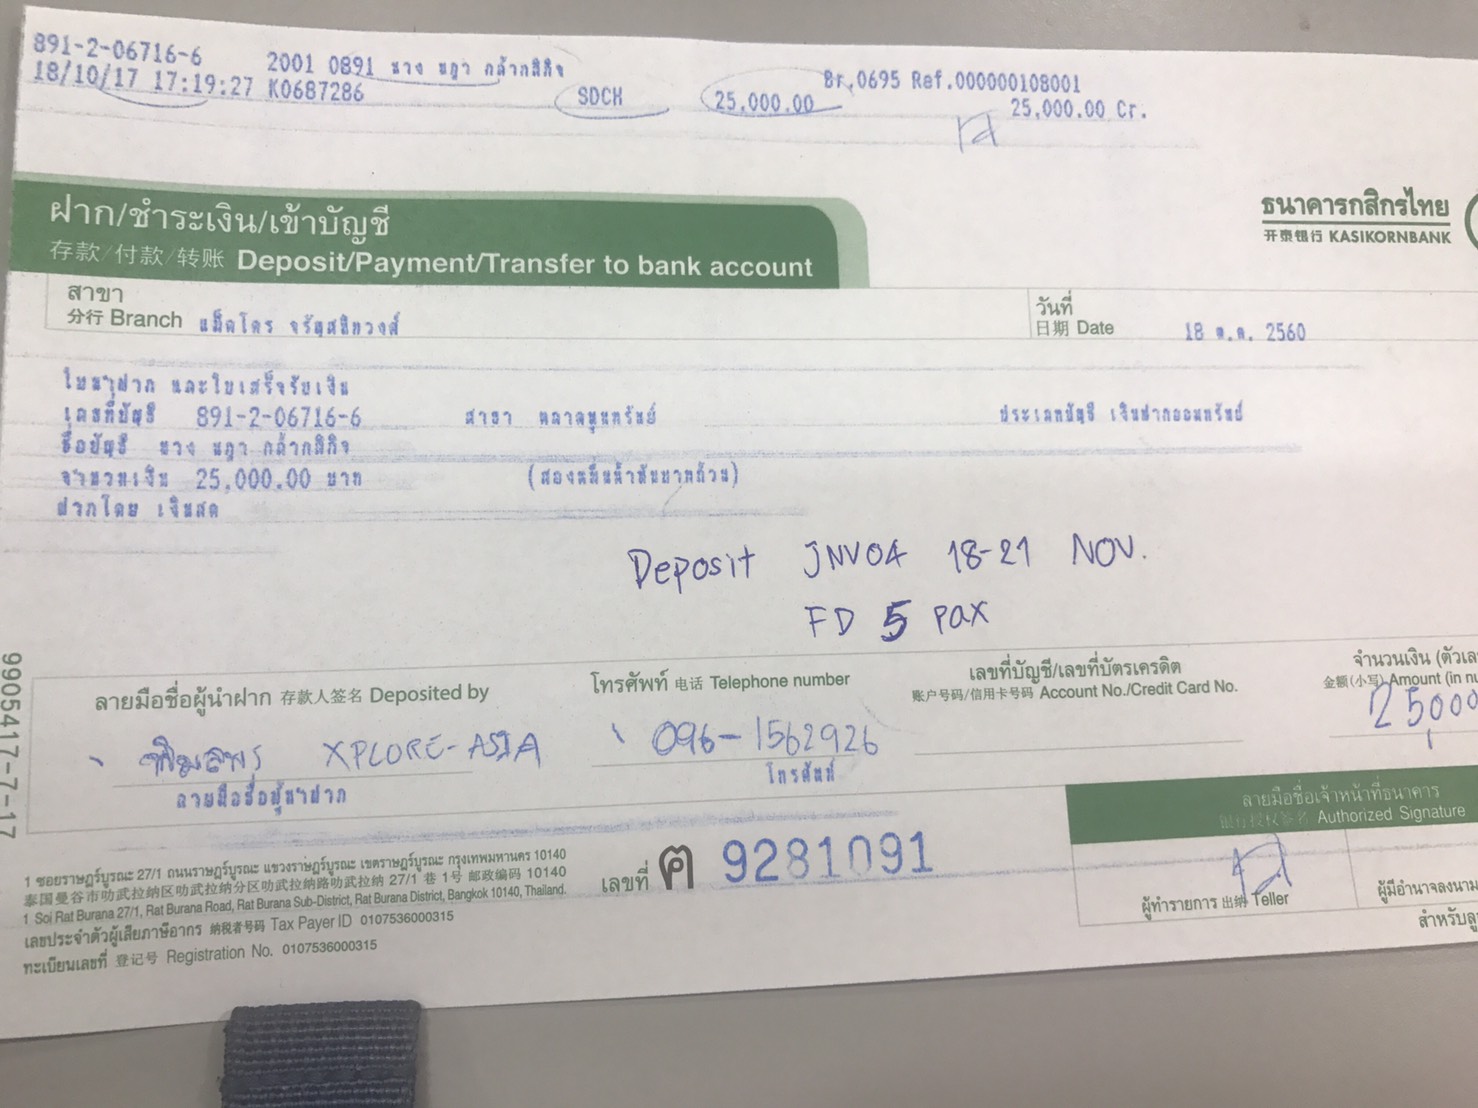 891-2-06716-6 2001 0891 นาง นฎา กล้ากสิกิจ Br.0695 Ref.000000108001
18/10/17 17:19:27 K0687286 SDCH 25,000.00 25,000.00 Cr.
ฝาก/ชำระเงิน/เข้าบัญชี
存款/付款/转账 Deposit/Payment/Transfer to bank account
ธนาคารกสิกรไทย
开泰银行 KASIKORNBANK
สาขา
分行 Branch แม็คโคร จรัญสนิทวงศ์
วันที่
日期 Date 18 ต.ค. 2560
ใบนำฝาก และใบเสร็จรับเงิน
เลขที่บัญชี 891-2-06716-6 สาขา ตลาดพูนทรัพย์ ประเภทบัญชี เงินฝากออมทรัพย์
ชื่อบัญชี นาง นฎา กล้ากสิกิจ
จำนวนเงิน 25,000.00 บาท (สองหมื่นห้าพันบาทถ้วน)
ฝากโดย เงินสด
Deposit JNV04 18-21 NOV.
FD 5 pax
9905417-7-17
ลายมือชื่อผู้นำฝาก 存款人签名 Deposited by
พิมลพร XPLORE-ASIA
ลายมือชื่อผู้นำฝาก
โทรศัพท์ 电话 Telephone number
096-1562926
โทรศัพท์
เลขที่บัญชี/เลขที่บัตรเครดิต
账户号码/信用卡号码 Account No./Credit Card No.
จำนวนเงิน (ตัวเล
金额(小写) Amount (in nu
25000
ลายมือชื่อเจ้าหน้าที่ธนาคาร
银行授权签名 Authorized Signature
ผู้ทำรายการ 出纳 Teller
ผู้มีอำนาจลงนาม
สำหรับลู
เลขที่ ฅ 9281091
1 ซอยราษฎร์บูรณะ 27/1 ถนนราษฎร์บูรณะ แขวงราษฎร์บูรณะ เขตราษฎร์บูรณะ กรุงเทพมหานคร 10140
泰国曼谷市叻武拉纳区叻武拉纳分区叻武拉纳路叻武拉纳 27/1 巷 1号 邮政编码 10140
1 Soi Rat Burana 27/1, Rat Burana Road, Rat Burana Sub-District, Rat Burana District, Bangkok 10140, Thailand.
เลขประจำตัวผู้เสียภาษีอากร 纳税者号码 Tax Payer ID 0107536000315
ทะเบียนเลขที่ 登记号 Registration No. 0107536000315